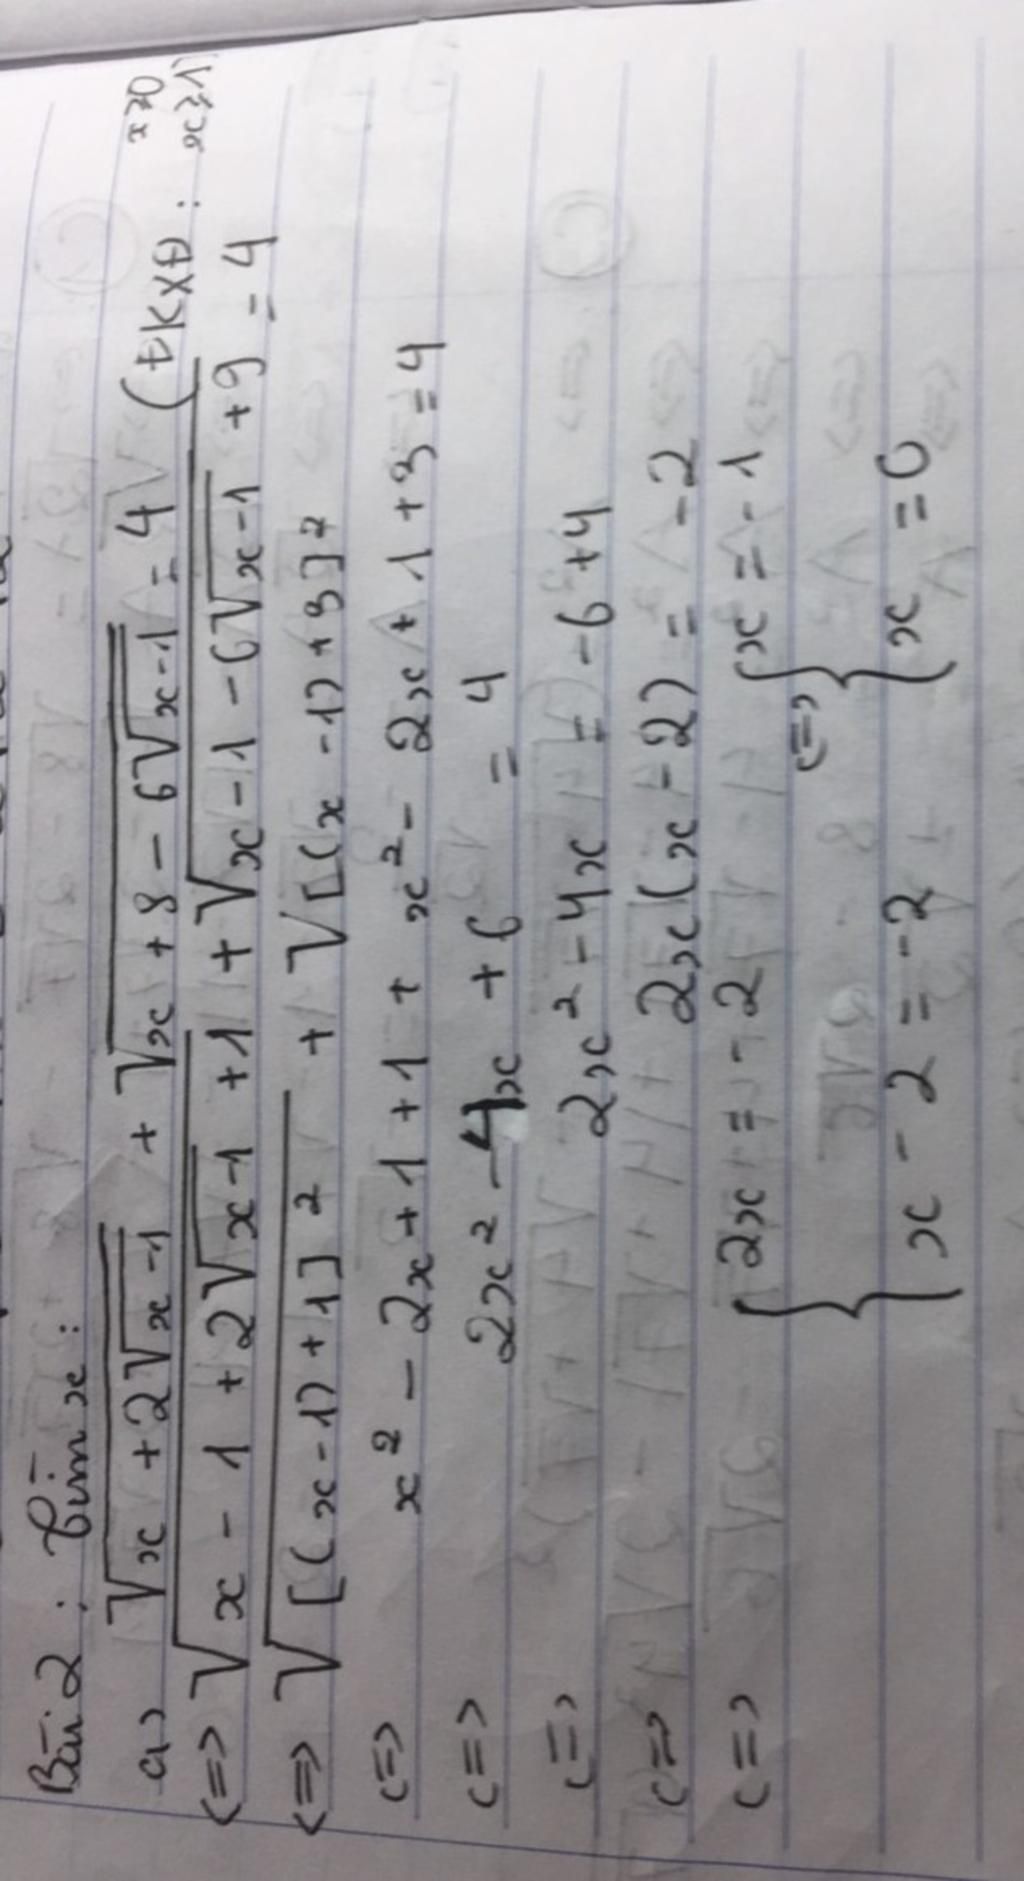 Bài 2 : Tìm x :
a) √(x + 2√(x-1)) + √(x + 8 - 6√(x-1)) = 4 (ĐKXĐ : x≥0 x≥1)
<=> √(x - 1 + 2√(x-1) + 1) + √(x - 1 - 6√(x-1) + 9) = 4
<=> √([(x-1)+1]²) + √[(x-1)+3]²
<=> x² - 2x + 1 + 1 + x² - 2x + 1 + 3 = 4
<=> 2x² - 4x + 6 = 4
<=> 2x² - 4x = -6 + 4
<=> 2x(x-2) = -2
<=> { 2x = -2 <=> { x = -1
x - 2 = -2 x = 0